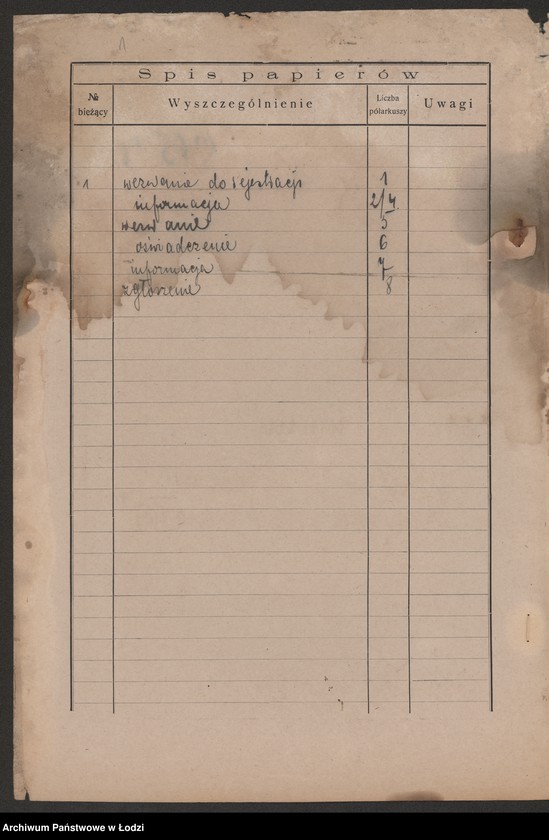 1
Spis papierów
№ bieżący Wyszczególnienie Liczba półarkuszy Uwagi
1 wezwanie do rejestracji 1
informacja 2/4
wezwanie 5
oświadczenie 6
informacja 7
zgłoszenie 8
Archiwum Państwowe w Łodzi